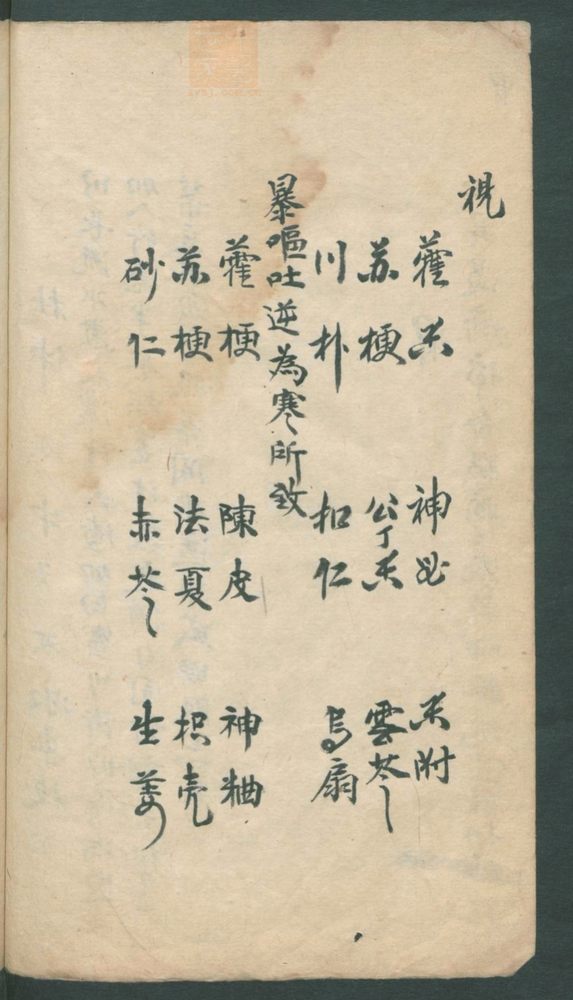 視
藿香 神曲 香附
苏梗 公丁香 雲苓
川朴 扣仁 烏扇
暴嘔吐逆為寒所致
藿梗 陳皮 神粬
苏梗 法夏 枳壳
砂仁 赤苓 生姜